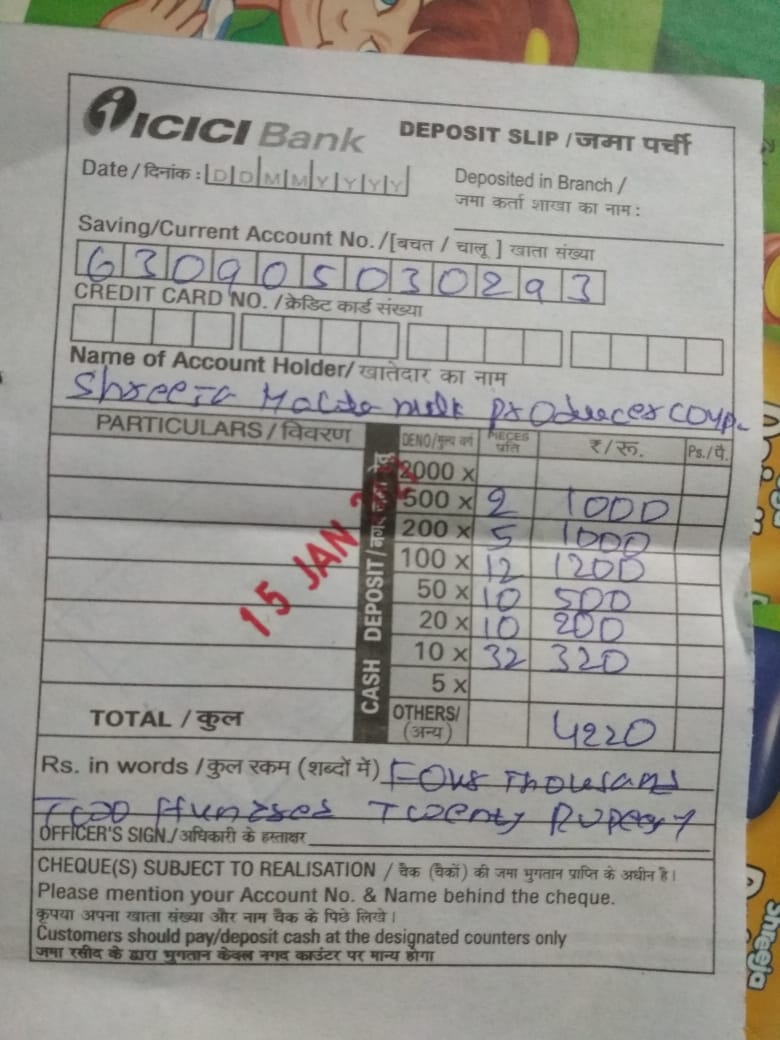 ICICI Bank DEPOSIT SLIP / जमा पर्ची
Date / दिनांक : D D M M Y Y Y Y
Deposited in Branch /
जमा कर्ता शाखा का नाम :
Saving/Current Account No. /[बचत / चालू ] खाता संख्या
630905030293
CREDIT CARD NO. / क्रेडिट कार्ड संख्या
Name of Account Holder/ खातेदार का नाम
Shreeja Mahila milk producer comp.
PARTICULARS / विवरण
CASH DEPOSIT / नगद जमा हेतु
DENO/मूल्य वर्ग PIECES प्रति ₹/रू. Ps./पै.
2000 x
500 x 2 1000
200 x 5 1000
100 x 12 1200
50 x 10 500
20 x 10 200
10 x 32 320
5 x
15 JAN
TOTAL / कुल OTHERS/ (अन्य) 4220
Rs. in words / कुल रकम (शब्दों में) Four Thousand
Two Hundred Twenty Rupees
OFFICER'S SIGN./ अधिकारी के हस्ताक्षर
CHEQUE(S) SUBJECT TO REALISATION / चैक (चैकों) की जमा भुगतान प्राप्ति के अधीन है।
Please mention your Account No. & Name behind the cheque.
कृपया अपना खाता संख्या और नाम चैक के पिछे लिखे।
Customers should pay/deposit cash at the designated counters only
जमा रसीद के द्वारा भुगतान केवल नगद काउंटर पर मान्य होगा
Shreeja